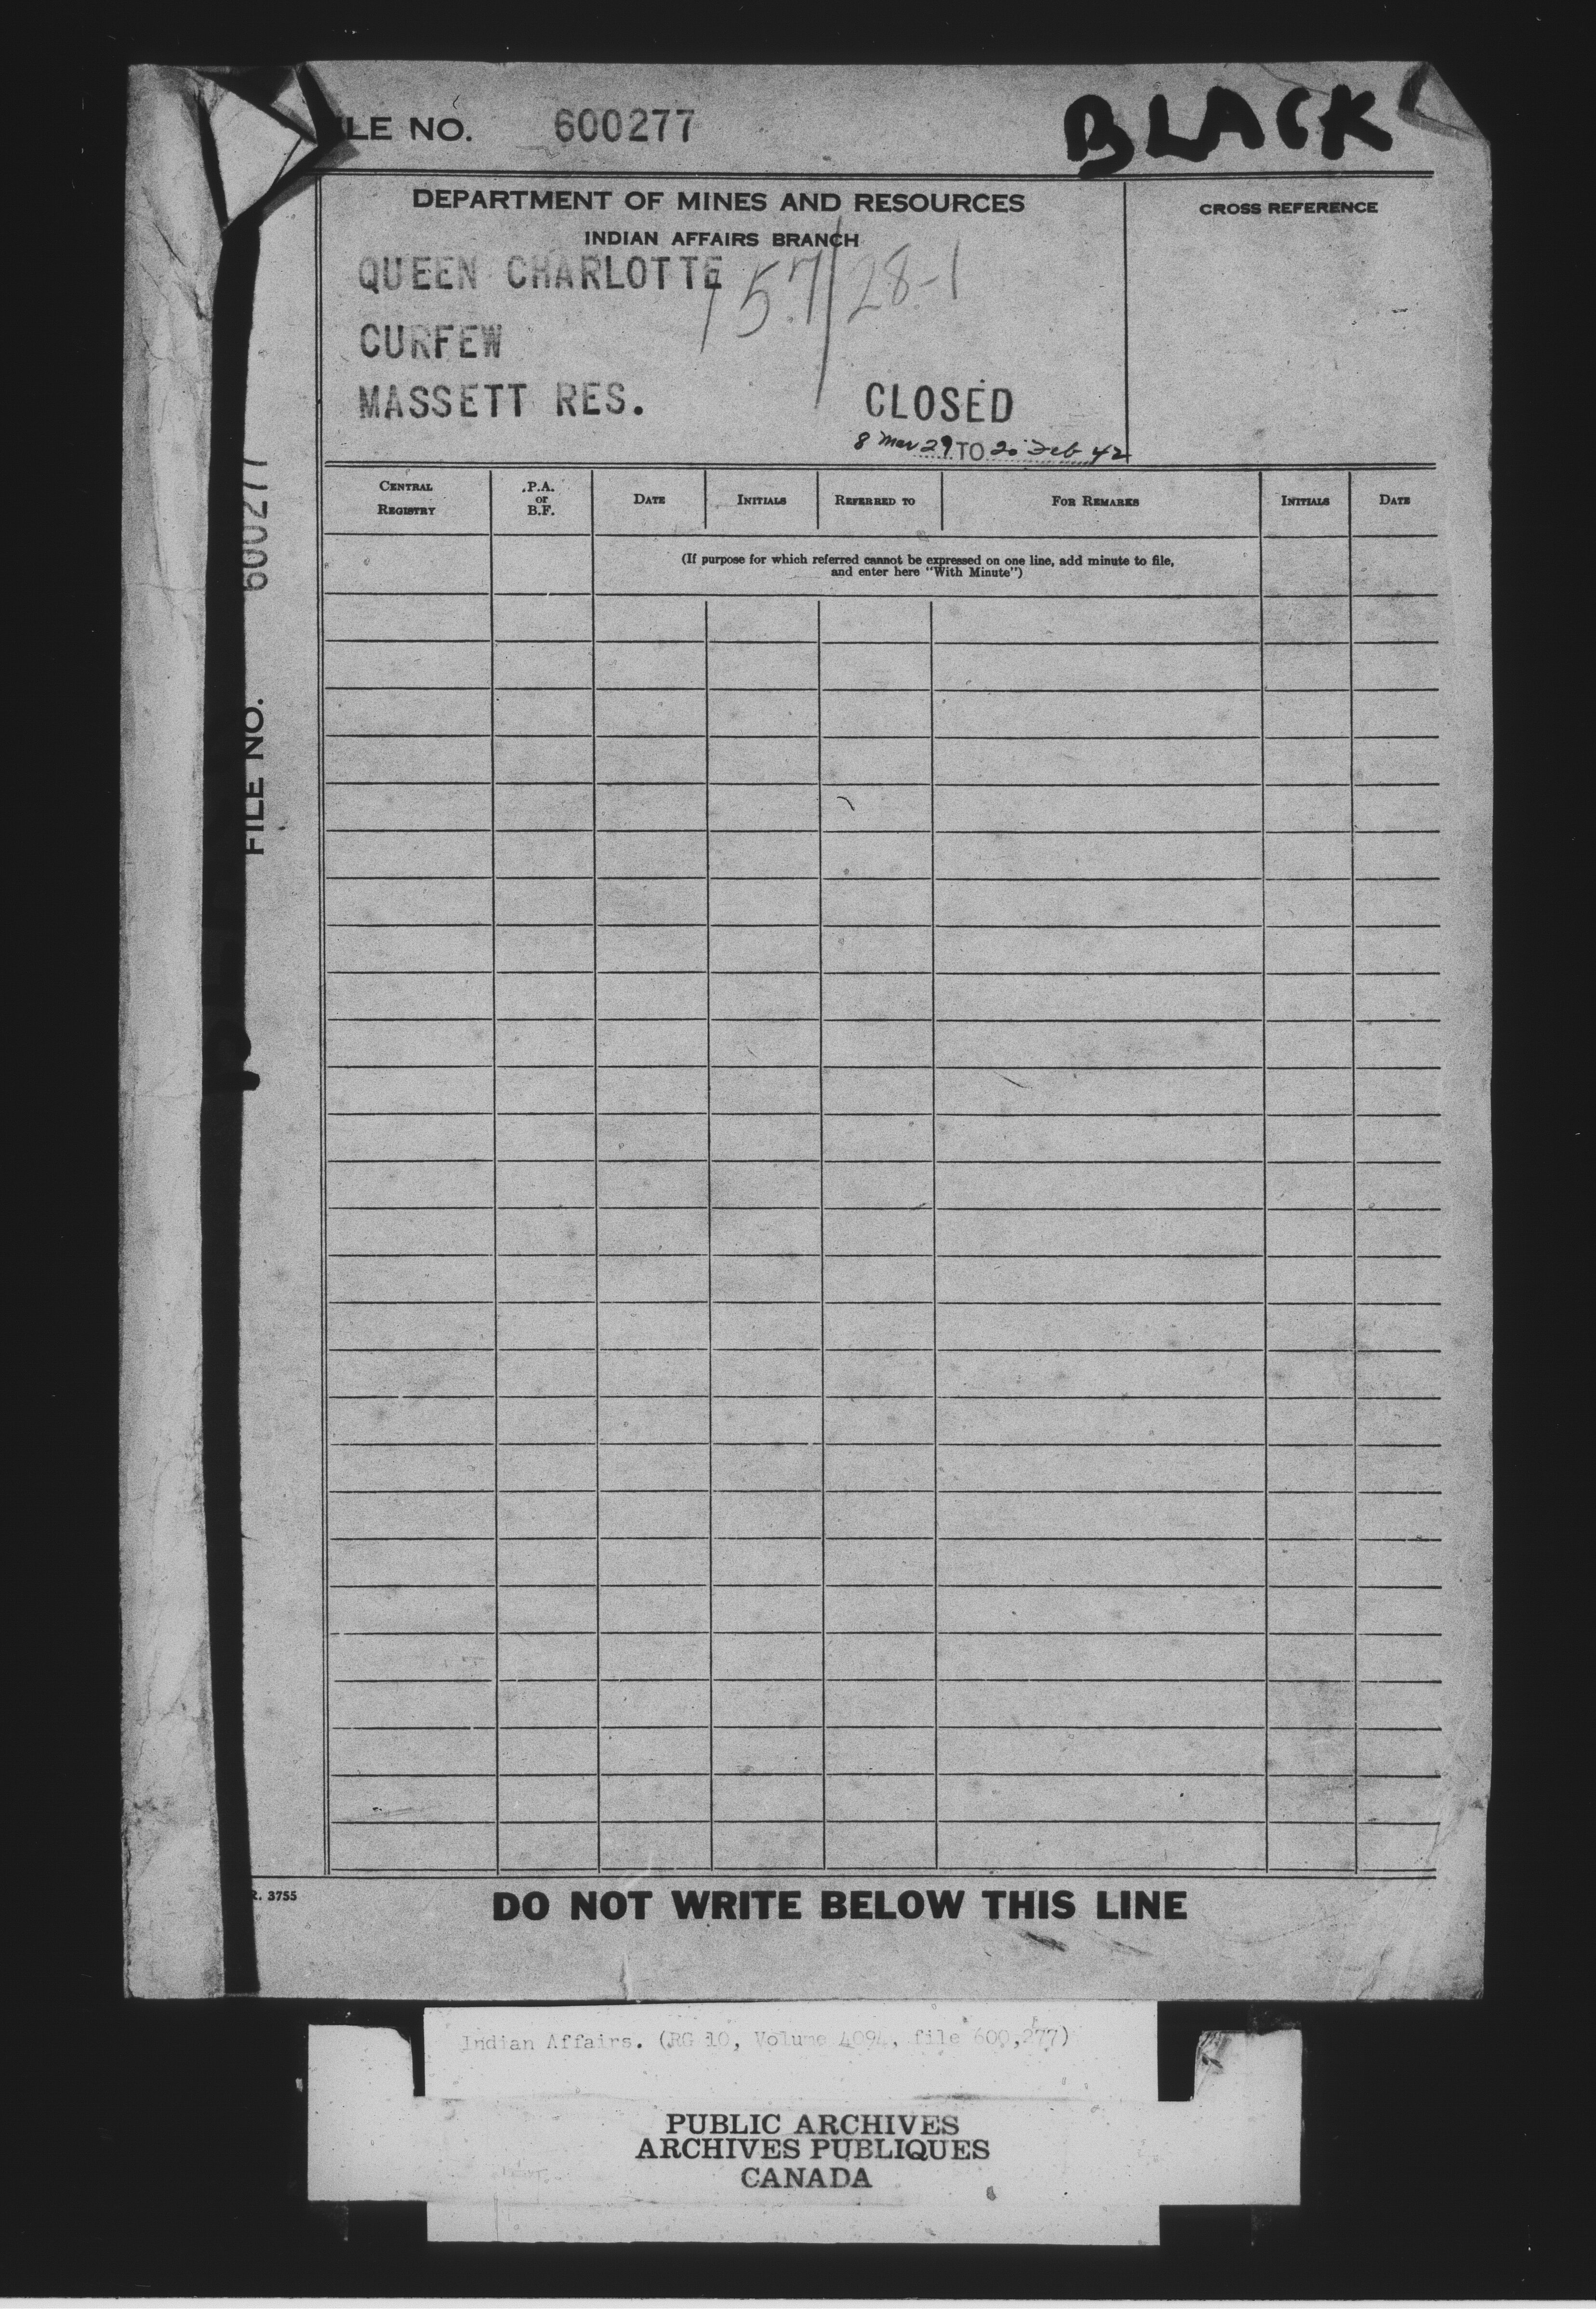 LE NO. 600277
BLACK
DEPARTMENT OF MINES AND RESOURCES
INDIAN AFFAIRS BRANCH
CROSS REFERENCE
QUEEN CHARLOTTE
157/28-1
CURFEW
MASSETT RES.
CLOSED
8 Mar 29 TO 20 Feb 42
FILE NO. 600277
CENTRAL REGISTRY
P.A. or B.F.
DATE
INITIALS
REFERRED TO
FOR REMARKS
INITIALS
DATE
(If purpose for which referred cannot be expressed on one line, add minute to file,
and enter here "With Minute")
R. 3755
DO NOT WRITE BELOW THIS LINE
Indian Affairs. (RG 10, Volume 4094, file 600,277)
PUBLIC ARCHIVES
ARCHIVES PUBLIQUES
CANADA